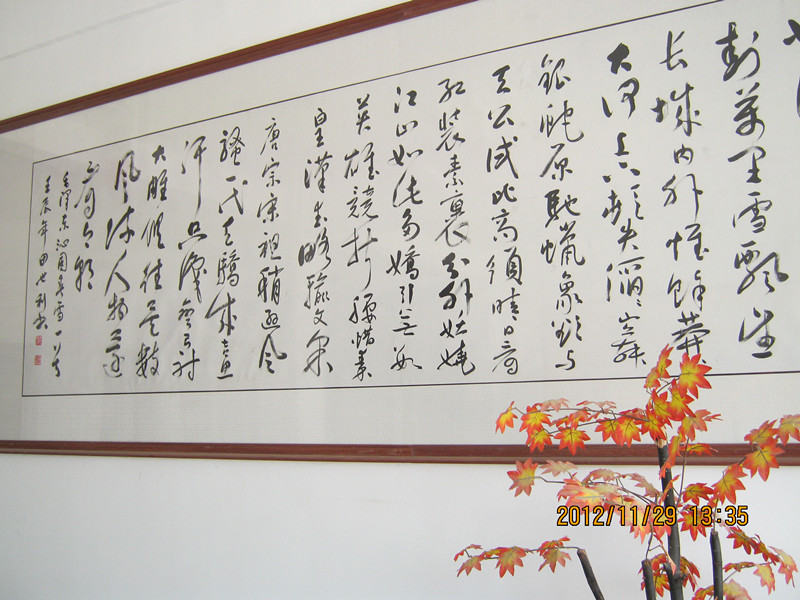 封萬里雪飄望
长城内外惟餘莽莽
大河上下頓失滔滔山舞
銀蛇原馳蠟象欲与
天公试比高須晴日看
红装素裹分外妖嬈
江山如此多嬌引無数
英雄競折腰惜秦
皇漢武略輸文采
唐宗宋祖稍逊风
骚一代天驕成吉思
汗只識彎弓射
大雕俱往矣数
風流人物還
看今朝
毛泽东沁园春雪一首
壬辰年田利书
2012/11/29 13:35